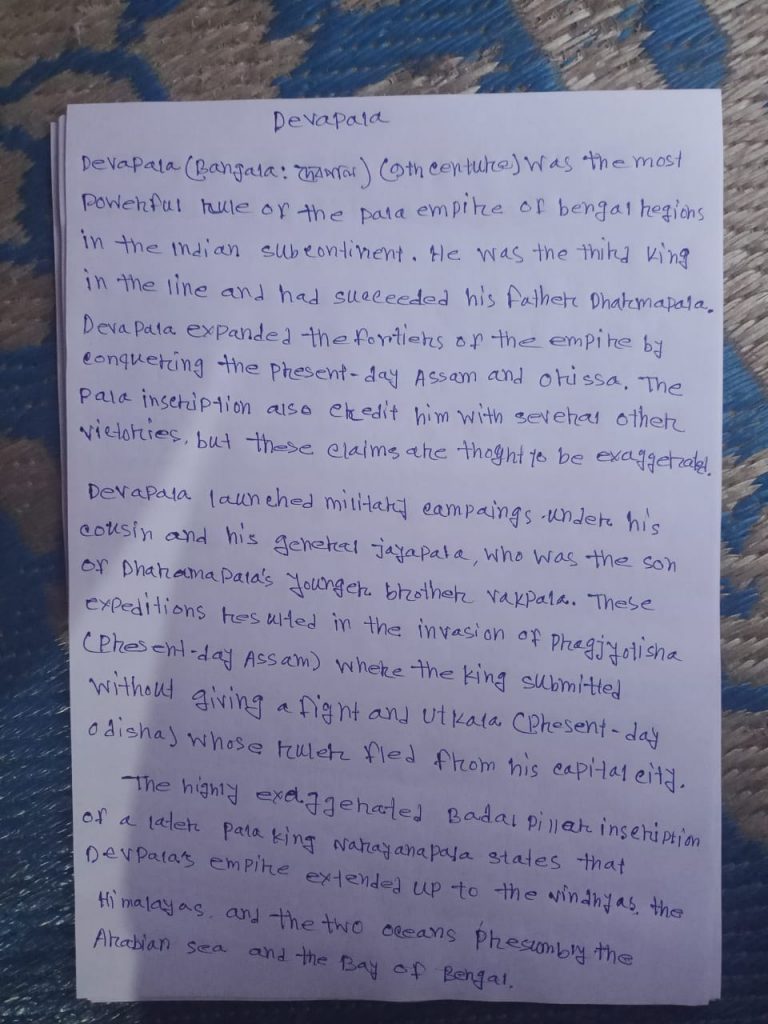 Devapala
Devapala (Bangala: দেবপাল) (9th centure) was the most
powerful rule of the pala empire of bengal regions
in the Indian subcontinent. He was the third king
in the line and had succeeded his father Dharmapala.
Devapala expanded the fortiers of the empire by
conquering the present-day Assam and orissa. The
pala inscription also credit him with several other
victories, but these claims are thoght to be exaggerated.
Devapala launched military campaings under his
cousin and his general jayapala, who was the son
of Dharamapala's younger brother vakpala. These
expeditions resulted in the invasion of Pragjyotisha
(Present-day Assam) where the king submitted
without giving a fight and utkala (Present-day
odisha) whose ruler fled from his capital city.
The highly exaggerated Badal pillar inscription
of a later pala king Narayanapala states that
Devpala's empire extended up to the vindhyas, the
Himalayas, and the two oceans presumbly the
Arabian sea and the Bay of Bengal.